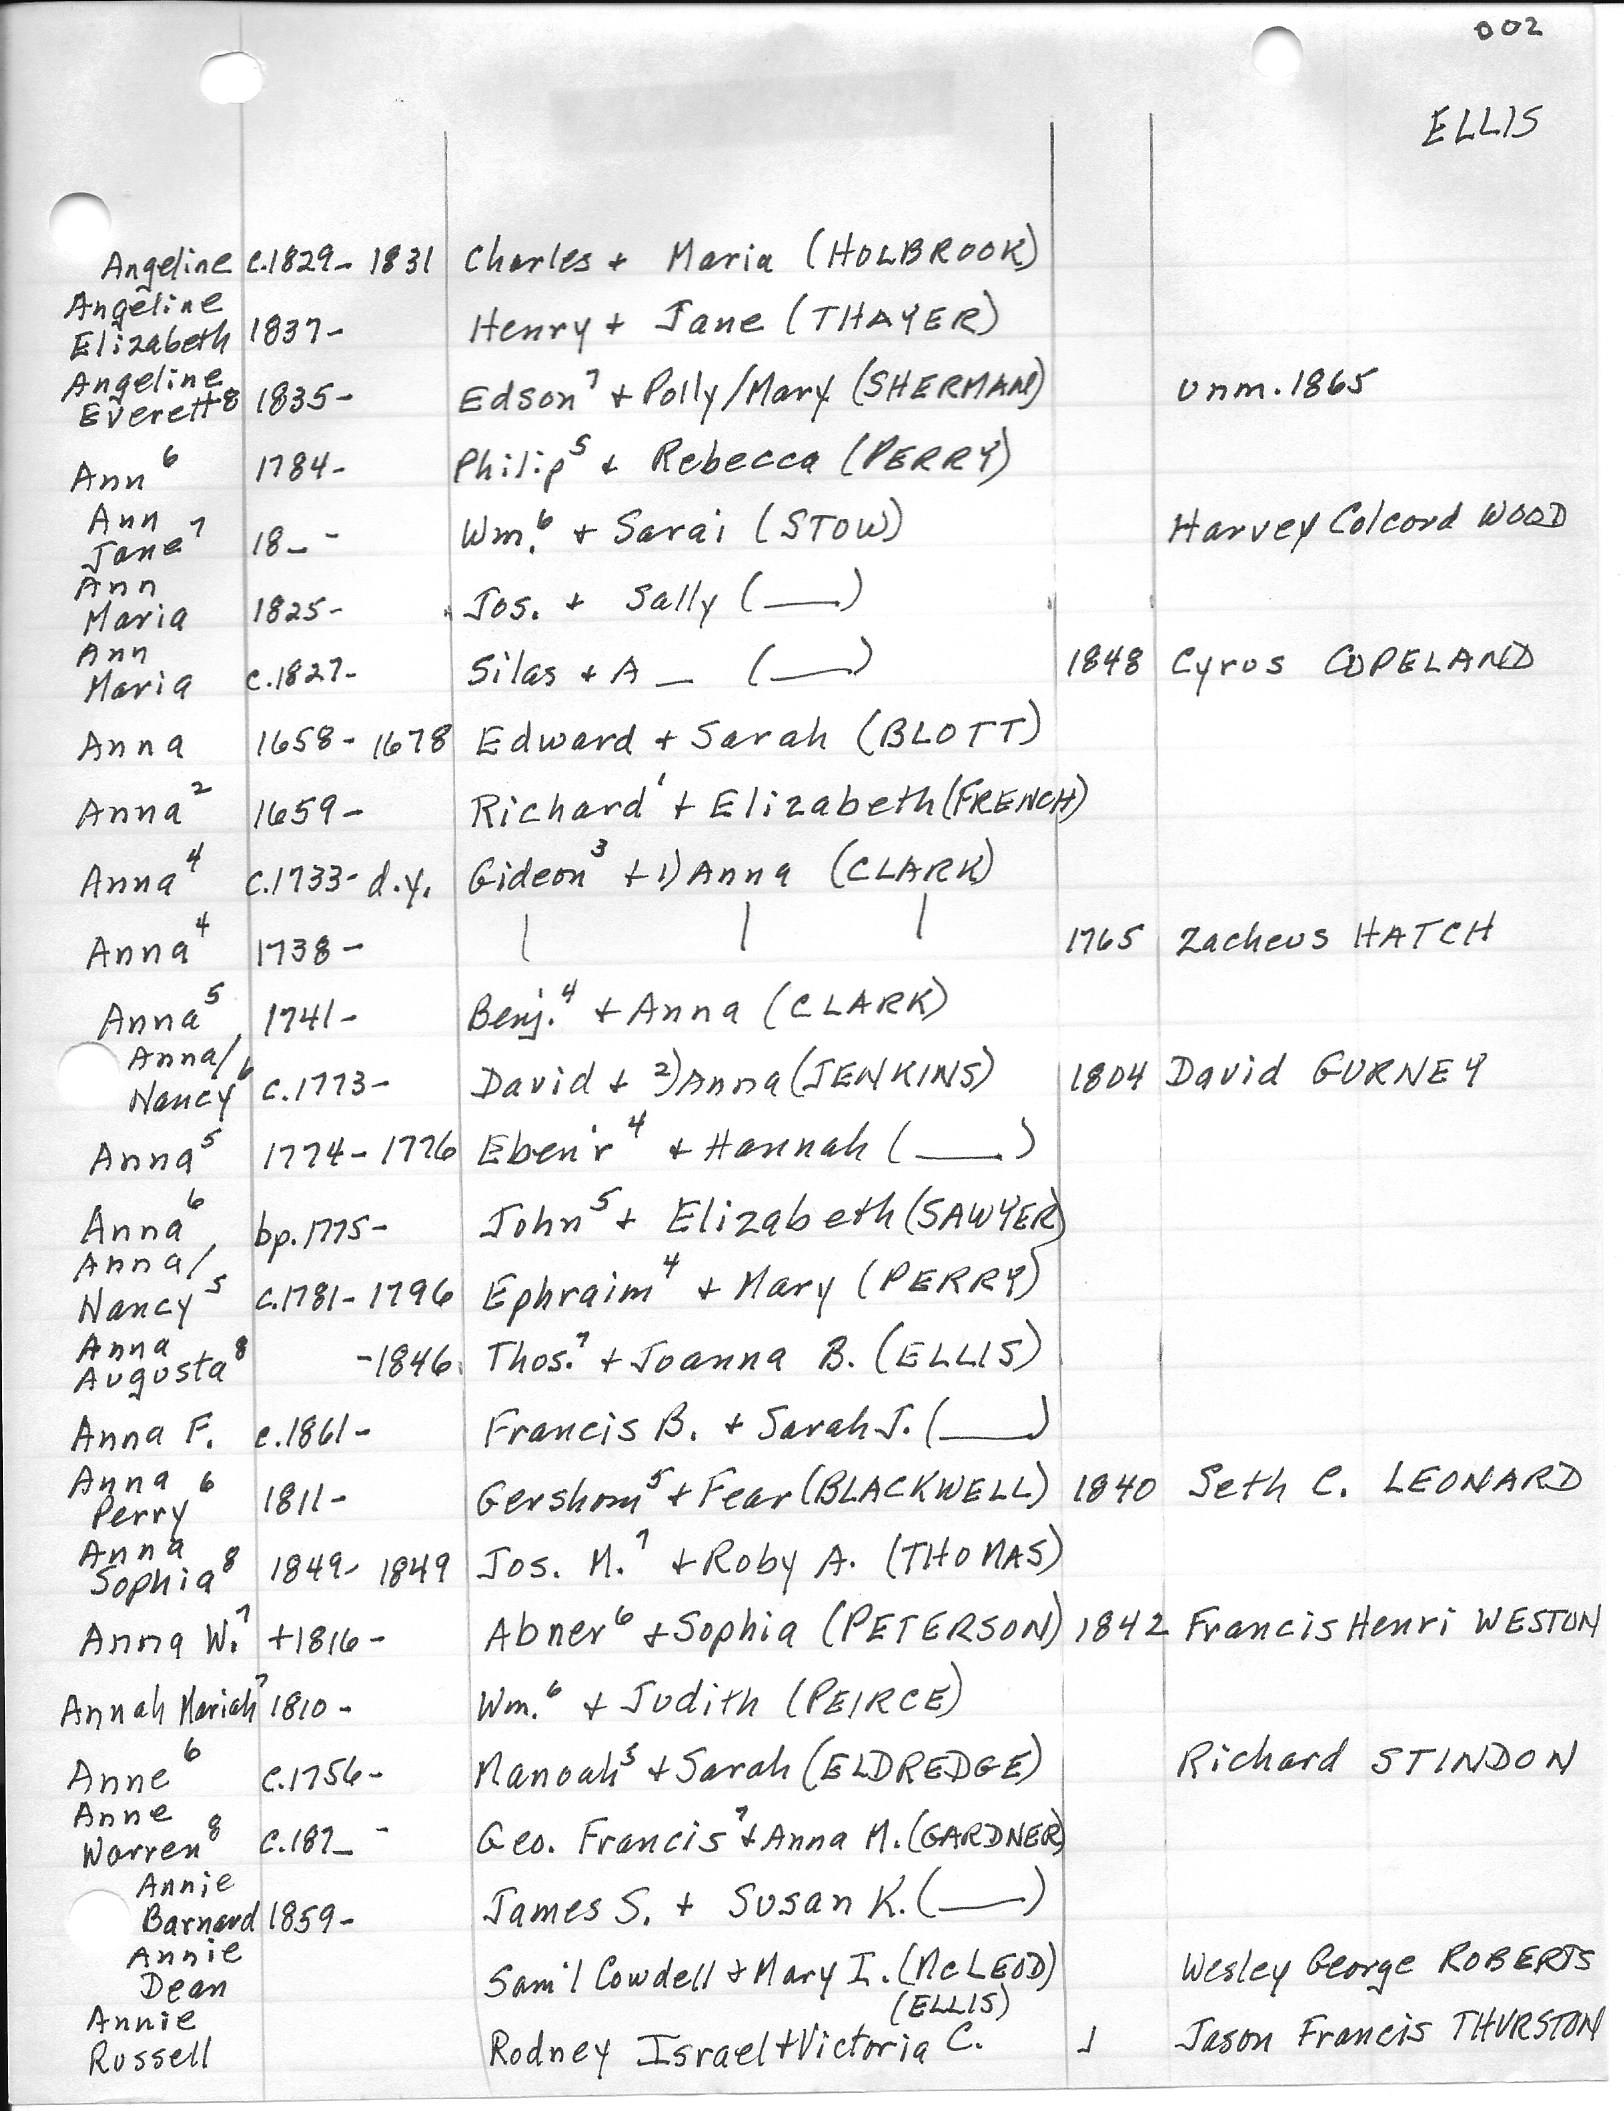 002
ELLIS
Angeline c.1829- 1831 Charles + Maria (HOLBROOK)
Angeline
Elizabeth 1837- Henry + Jane (THAYER)
Angeline
Everett⁸ 1835- Edson⁷ + Polly/Mary (SHERMAN) unm. 1865
Ann⁶ 1784- Philip⁵ + Rebecca (PERRY)
Ann
Jane⁷ 18_ - Wm.⁶ + Sarai (STOW) Harvey Colcord WOOD
Ann
Maria 1825- Jos. + Sally (___)
Ann
Maria c.1827- Silas + A_ (___) 1848 Cyrus COPELAND
Anna 1658- 1678 Edward + Sarah (BLOTT)
Anna² 1659- Richard¹ + Elizabeth (FRENCH)
Anna⁴ c.1733- d.y. Gideon³ + 1) Anna (CLARK)
Anna⁴ 1738- | | | 1765 Zacheus HATCH
Anna⁵ 1741- Benj.⁴ + Anna (CLARK)
Anna/
Nancy⁶ c.1773- David + 2) Anna (JENKINS) 1804 David GURNEY
Anna⁵ 1774- 1776 Eben'r⁴ + Hannah (___)
Anna⁶ bp.1775- John⁵ + Elizabeth (SAWYER)
Anna/
Nancy⁵ c.1781- 1796 Ephraim⁴ + Mary (PERRY)
Anna
Augusta⁸ -1846 Thos.⁷ + Joanna B. (ELLIS)
Anna F. c.1861- Francis B. + Sarah J. (___)
Anna
Perry⁶ 1811- Gershom⁵ + Fear (BLACKWELL) 1840 Seth C. LEONARD
Anna
Sophia⁸ 1849- 1849 Jos. M.⁷ + Roby A. (THOMAS)
Anna W.⁷ +1816- Abner⁶ + Sophia (PETERSON) 1842 Francis Henri WESTON
Annah Mariah⁷ 1810- Wm.⁶ + Judith (PEIRCE)
Anne⁶ c.1756- Manoah⁵ + Sarah (ELDREDGE) Richard STINDON
Anne
Warren⁸ c.187_ - Geo. Francis⁷ + Anna M. (GARDNER)
Annie
Barnard 1859- James S. + Susan K. (___)
Annie
Dean Sam'l Cowdell + Mary I. (McLEOD) Wesley George ROBERTS
Annie (ELLIS)
Russell Rodney Israel + Victoria C. Jason Francis THURSTON